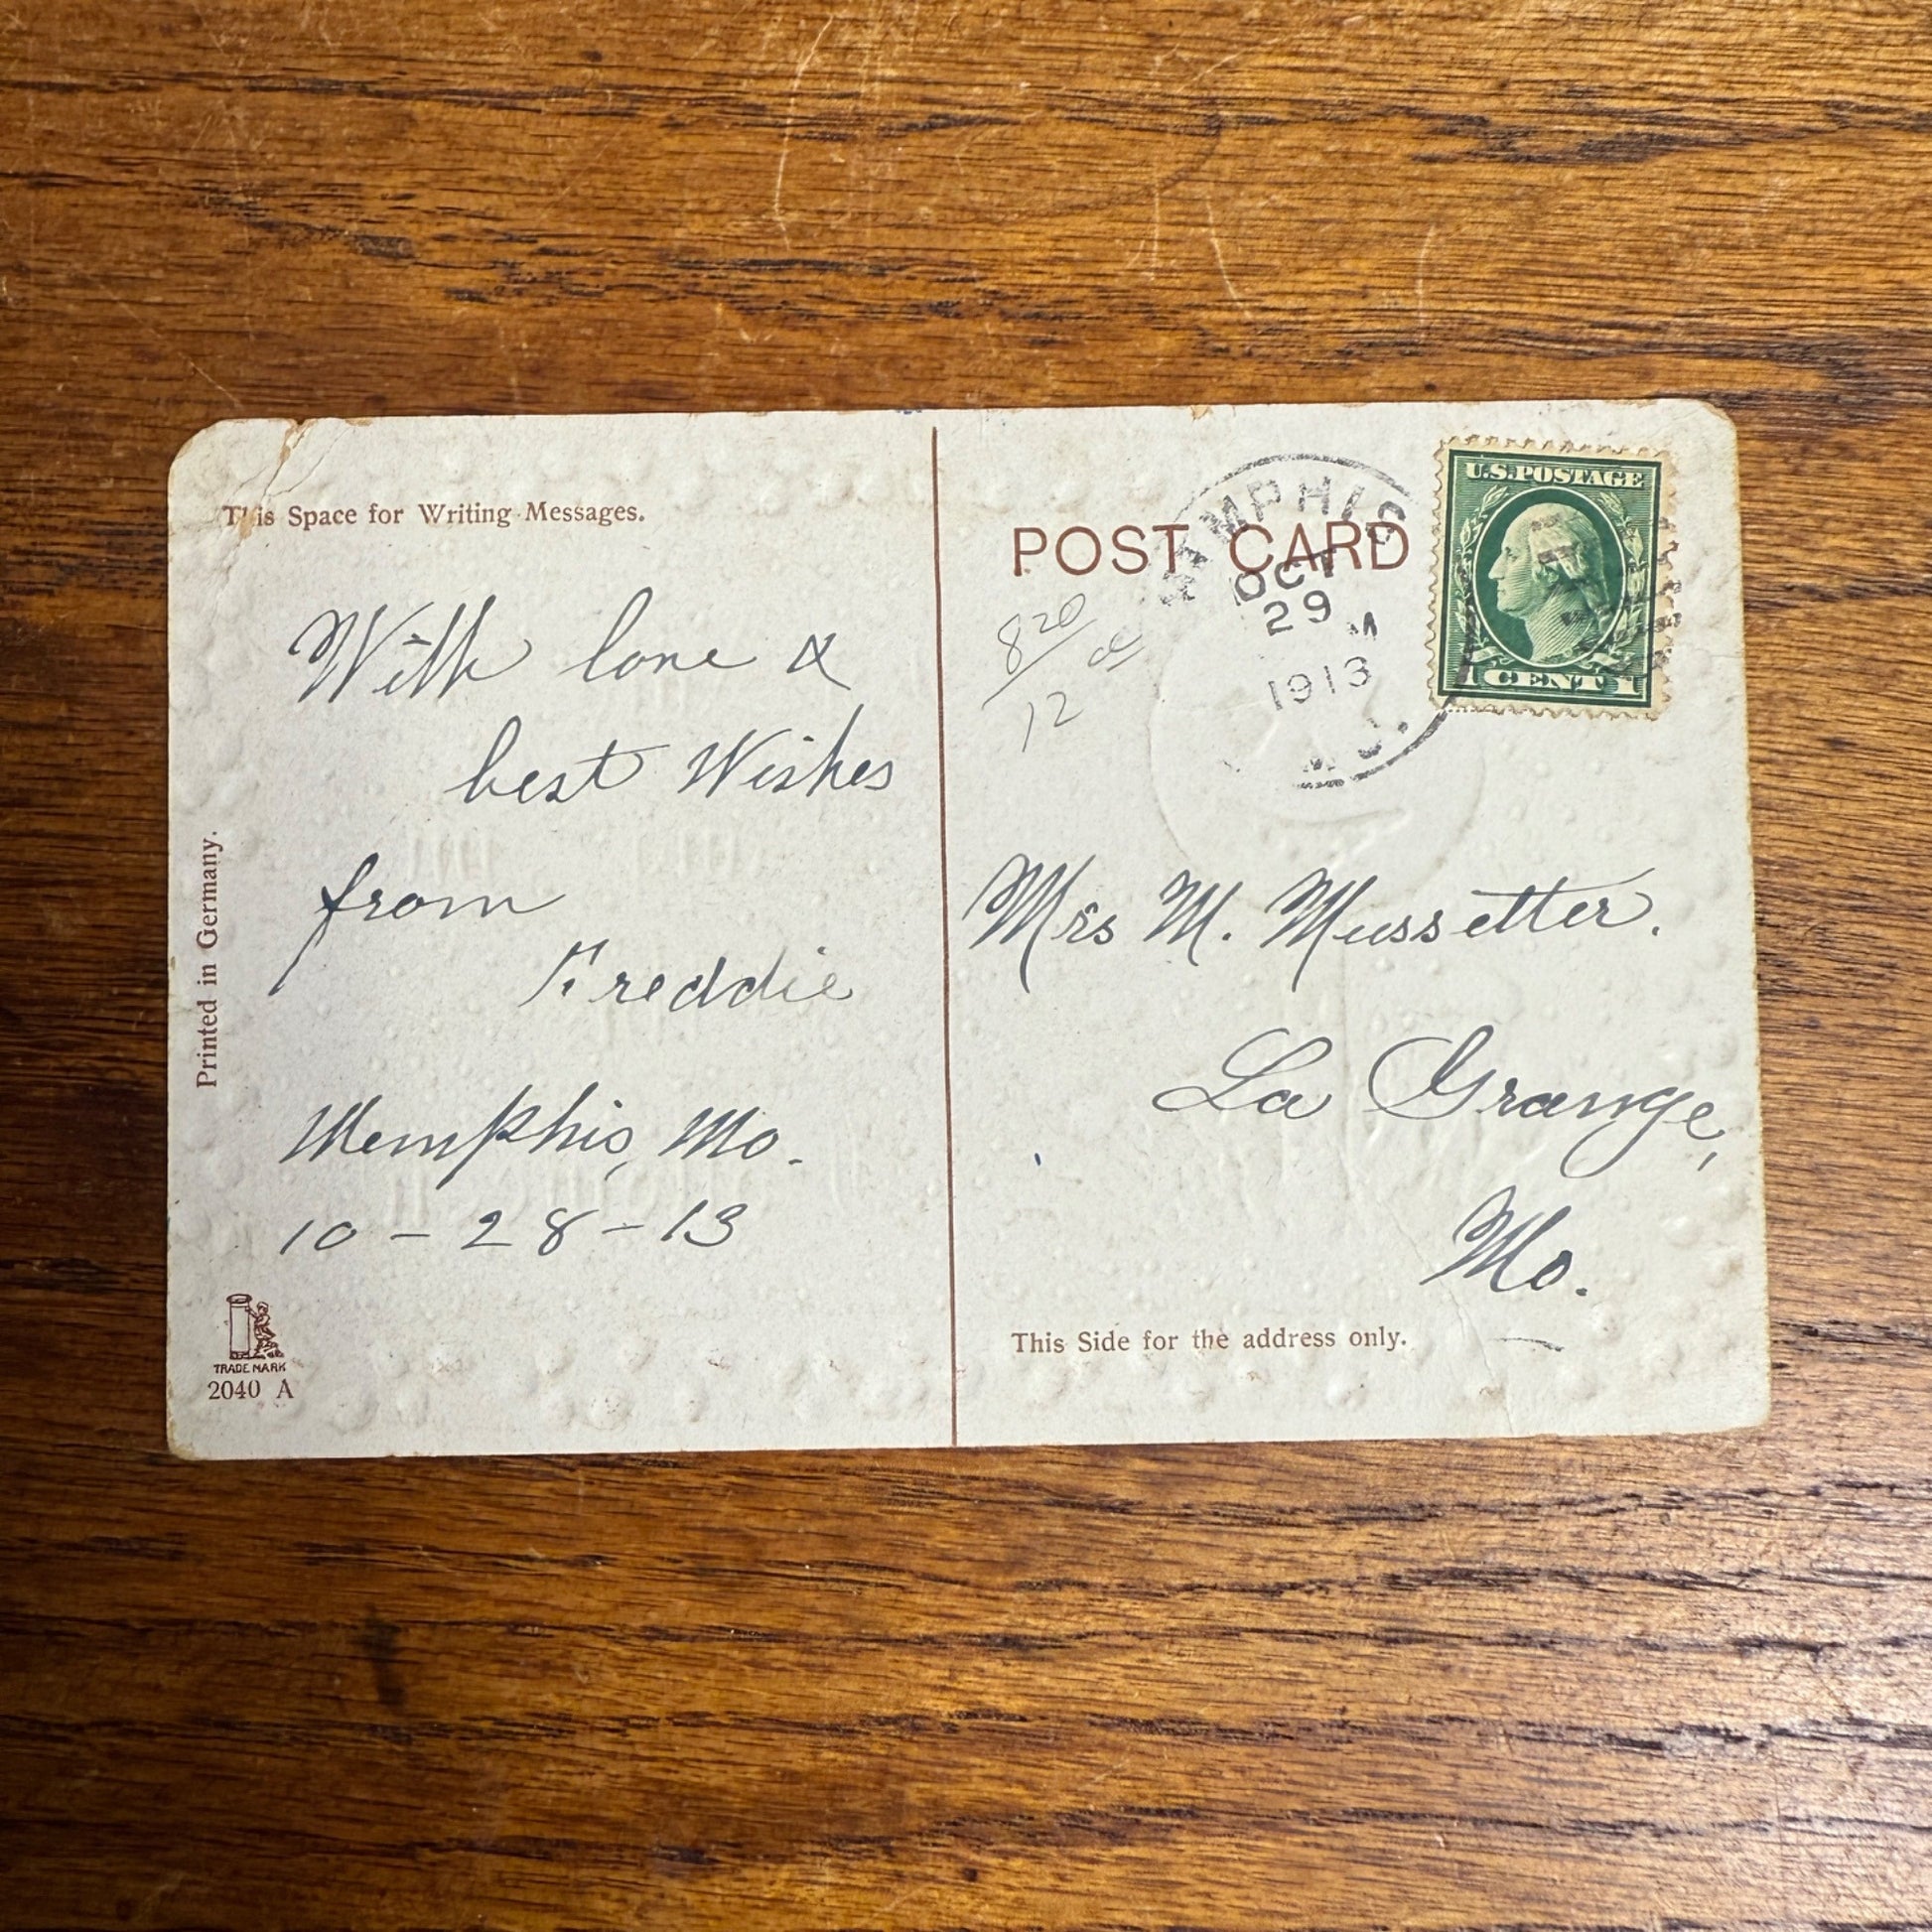 This Space for Writing Messages.
With love &
best Wishes
from
Freddie
Memphis, Mo.
10 - 28 - 13
Printed in Germany.
TRADE MARK
2040 A
POST CARD
MEMPHIS
OCT
29
M
1913
MO.
U.S. POSTAGE
1 CENT 1
8 20
12
Mrs M. Mussetter.
La Grange,
Mo.
This Side for the address only.